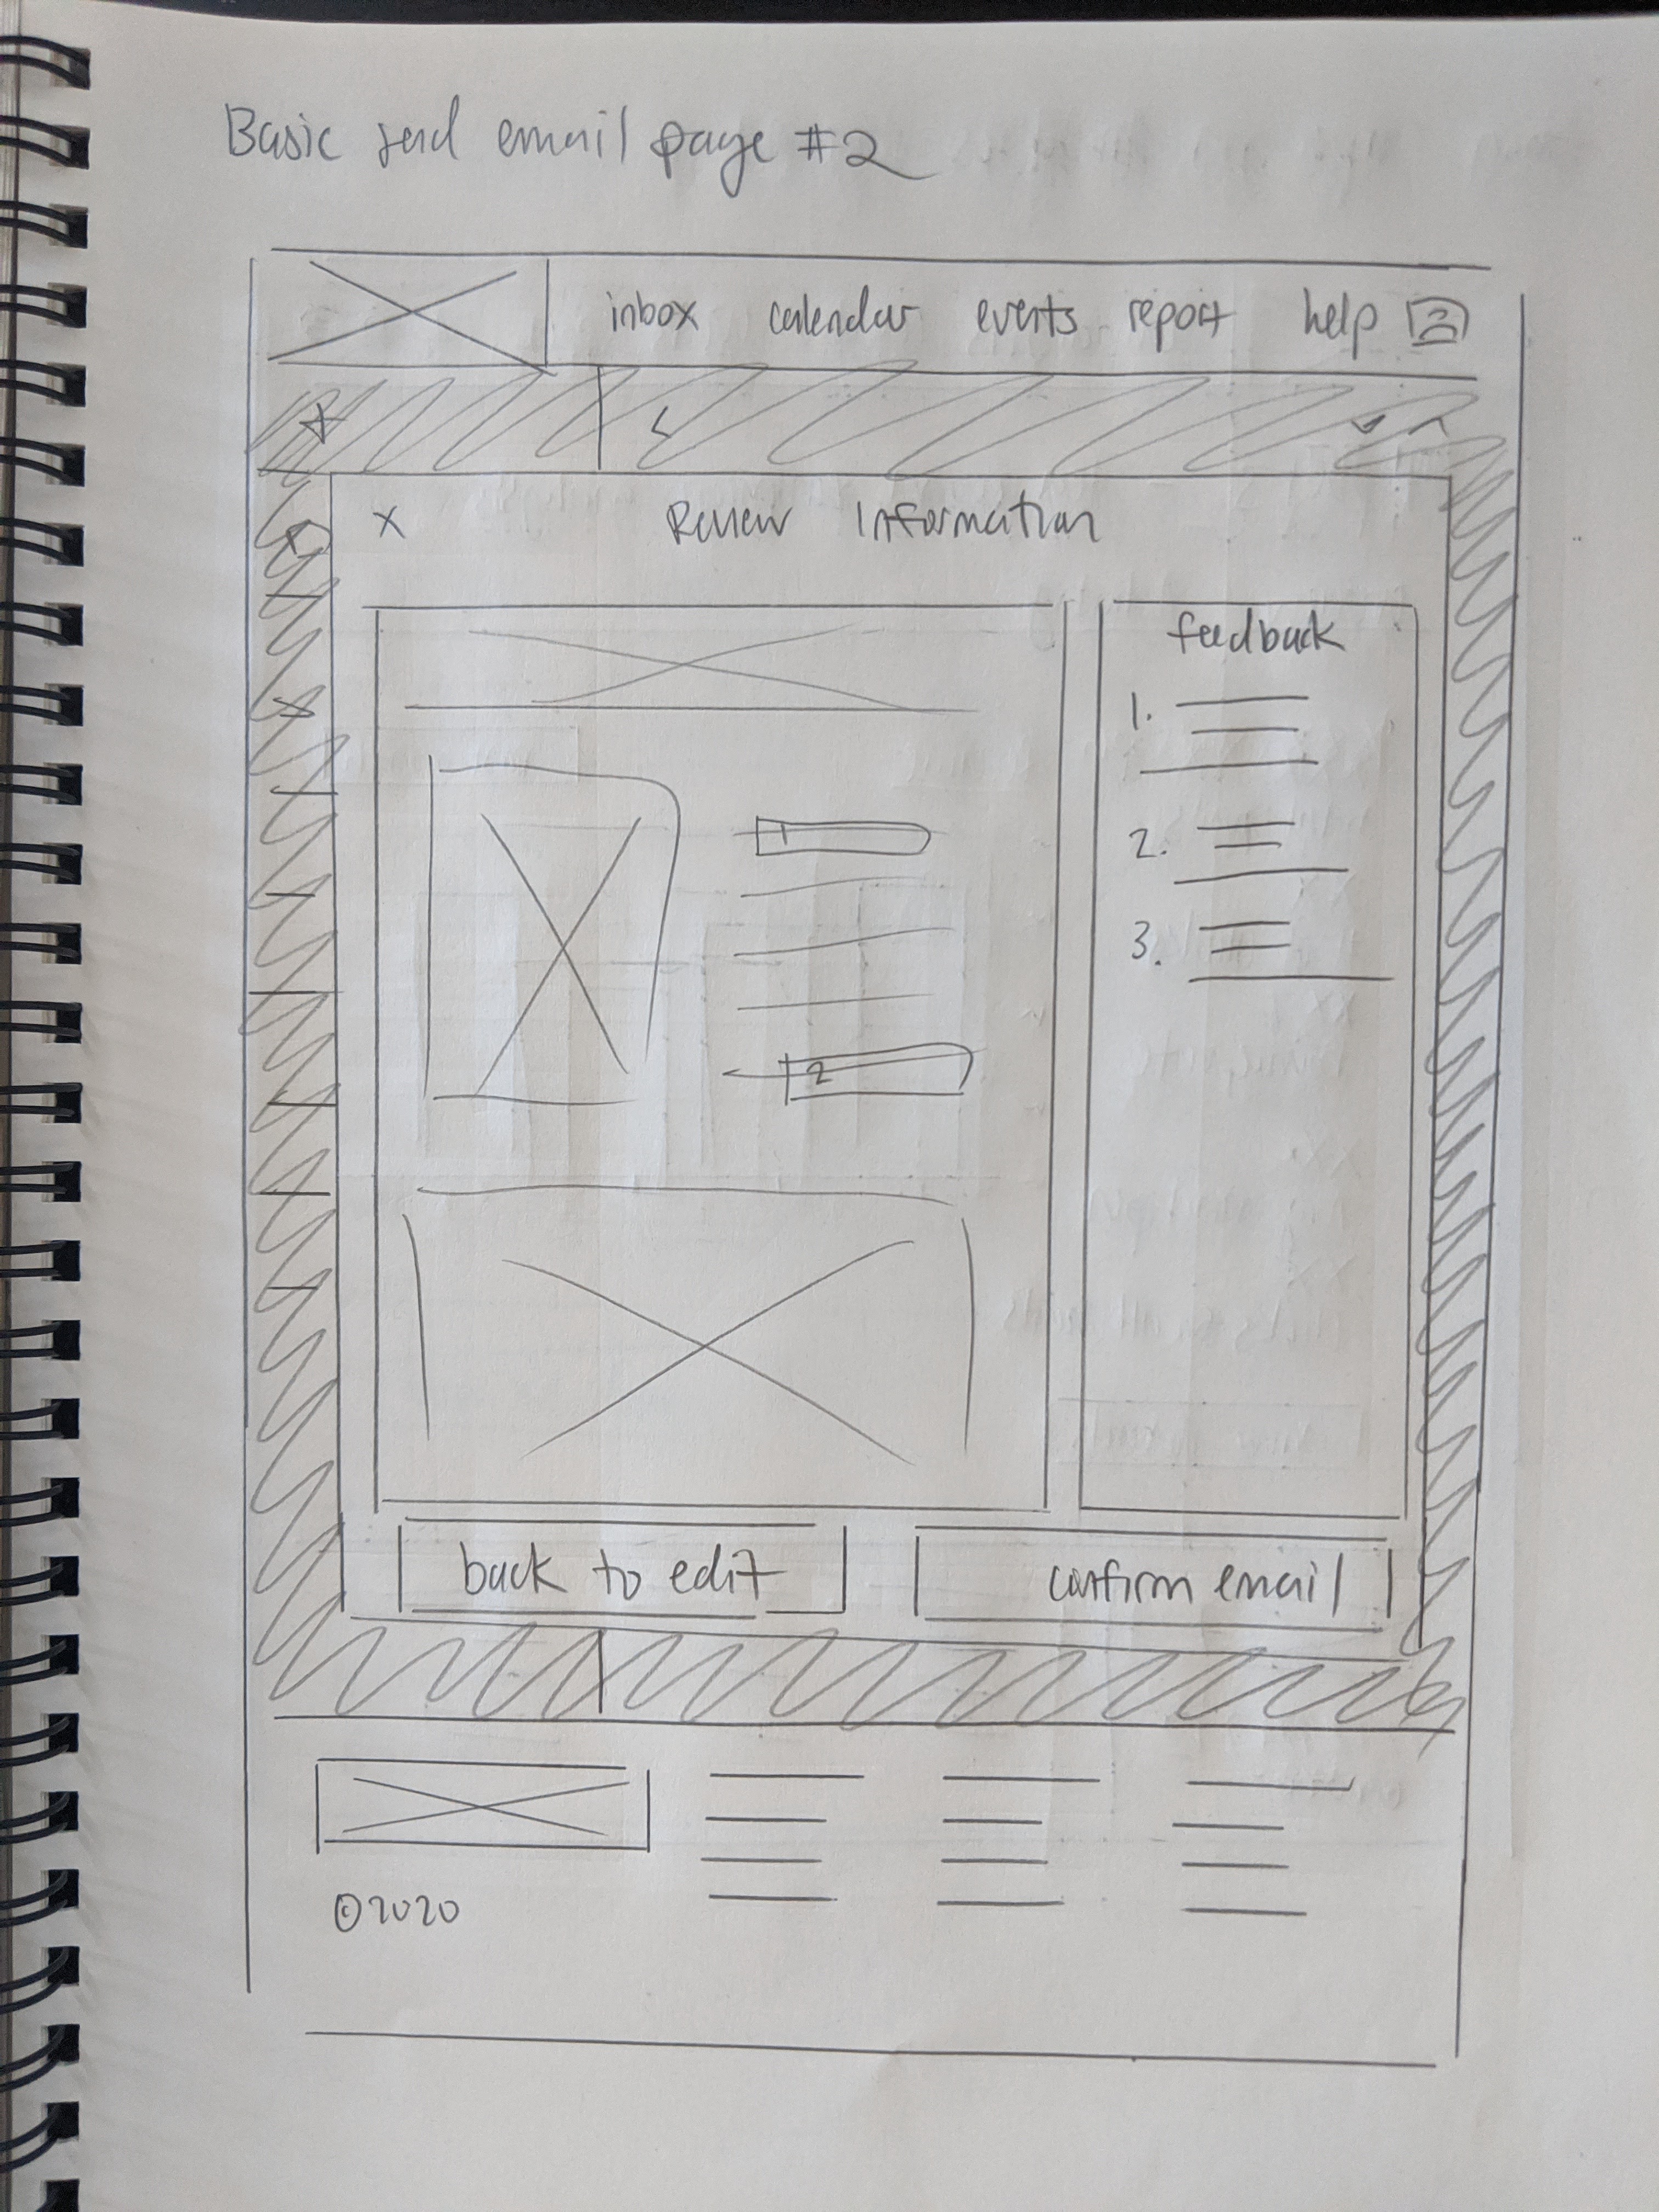 Basic send email page #2
inbox calendar events report help
X Review Information
feedback
1.
1
2.
3.
2
back to edit confirm email
©2020